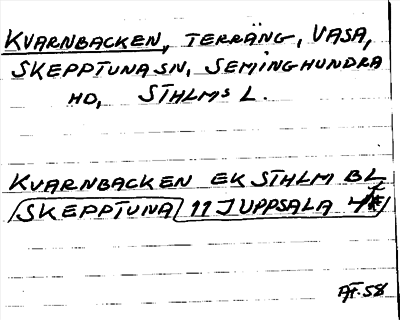 KVARNBACKEN, TERRÄNG, VASA,
SKEPPTUNA SN, SEMINGHUNDRA
HD, STHLMS L.
KVARNBACKEN EK STHLM BL
SKEPPTUNA 11 J UPPSALA
58